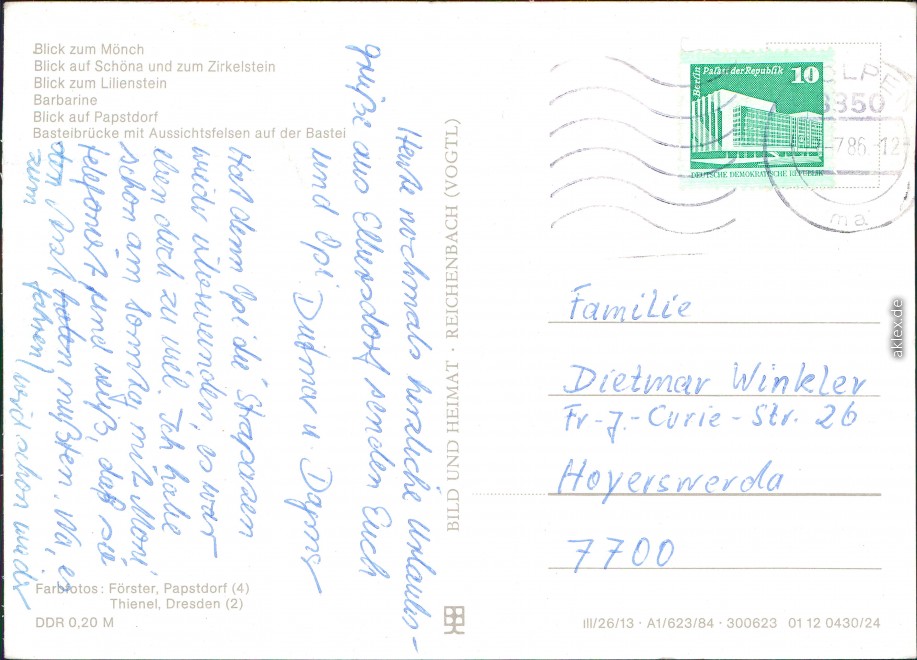 Blick zum Mönch
Blick auf Schöna und zum Zirkelstein
Blick zum Lilienstein
Barbarine
Blick auf Papstdorf
Basteibrücke mit Aussichtsfelsen auf der Bastei
Heute nochmals herzliche Urlaubs-
grüße aus senden Euch
und Opi Dietmar u.
Hat denn Opi die Strapazen
wieder überwunden, es war
eben doch zu viel. Ich habe
schon am Sonntag mit Moni
telefoniert und weiß, daß sie
zum Arzt mußten. Na, es
fahren wird schon wieder
Farbfotos: Förster, Papstdorf (4)
Thienel, Dresden (2)
DDR 0,20 M
BILD UND HEIMAT · REICHENBACH (VOGTL)
Berlin Palast der Republik 10
DEUTSCHE DEMOKRATISCHE REPUBLIK
8350
7 86-12
ma
Familie
Dietmar Winkler
Fr.-J.-Curie-Str. 26
Hoyerswerda
7700
III/26/13 · A1/623/84 · 300623 01 12 0430/24
aklex.de